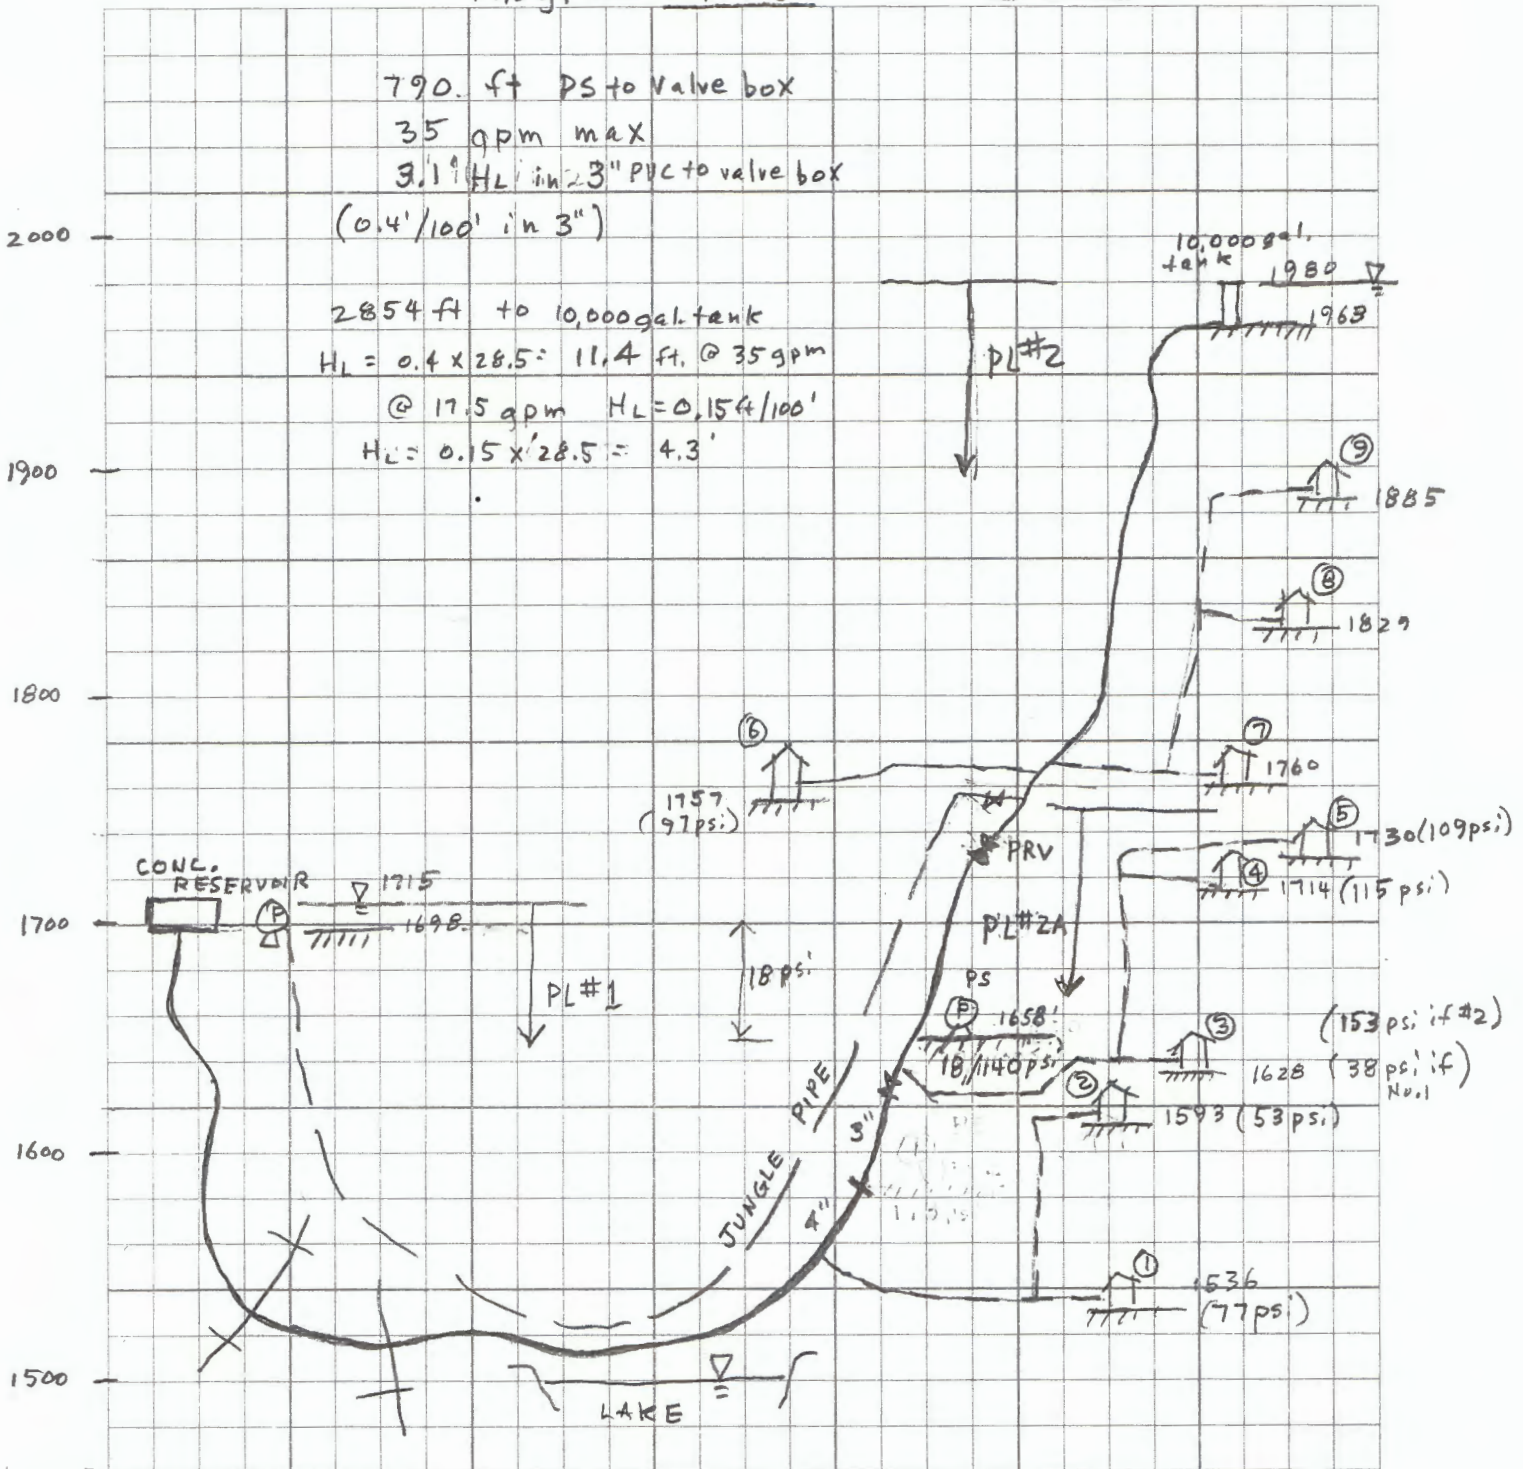 790. ft PS to valve box
35 gpm max
3.1' HL in 3" PVC to valve box
(0.4'/100' in 3")
2854 ft to 10,000 gal. tank
HL = 0.4 x 28.5 = 11.4 ft. @ 35 gpm
@ 17.5 gpm HL = 0.15 ft/100'
HL = 0.15 x 28.5 = 4.3'
2000
1900
1800
1700
1600
1500
10,000 gal.
tank
1980
1963
PL #2
9
1885
8
1829
6
1757
(97 psi)
7
1760
5
1730 (109 psi)
4
1714 (115 psi)
PRV
PL #2A
CONC.
RESERVOIR
P
1715
1698
PL #1
18 psi
PS
P
1658'
18/140 psi
3
1628
(153 psi if #2)
(38 psi if
No. 1)
2
1593 (53 psi)
JUNGLE PIPE
3"
4"
1
1536
(77 psi)
LAKE